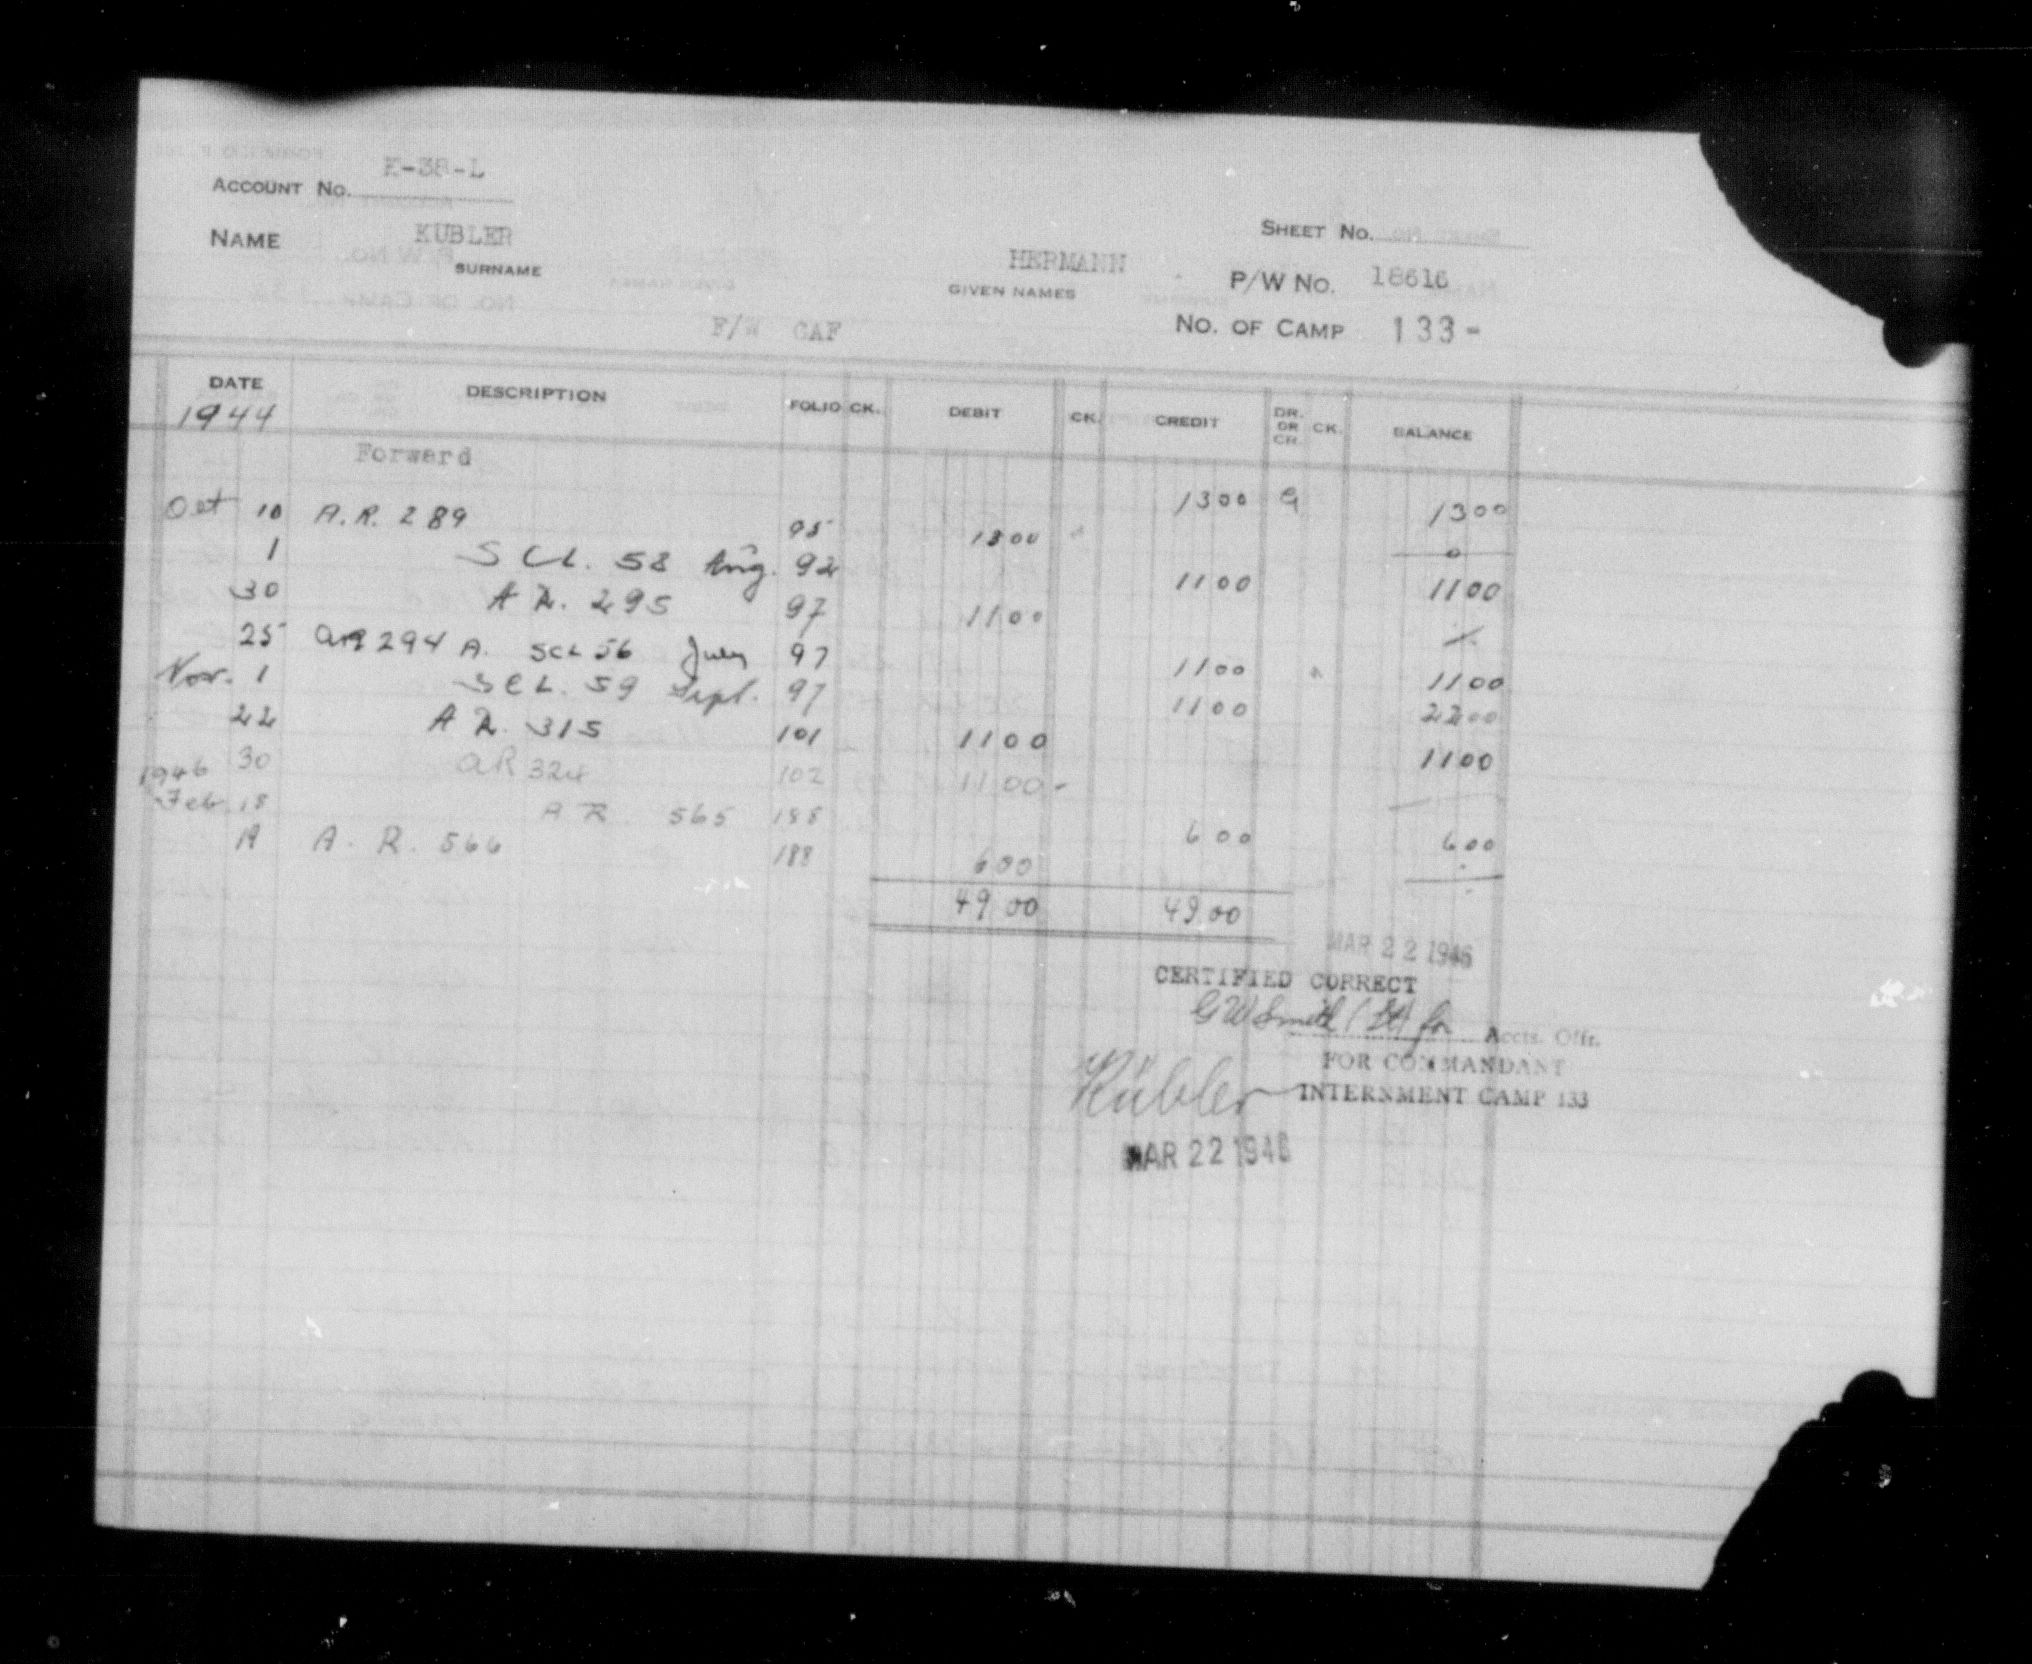 ACCOUNT No. K-38-L
SHEET No.
NAME KUBLER HERMANN P/W No. 18616
SURNAME GIVEN NAMES
F/W CAF No. OF CAMP 133-
DATE DESCRIPTION FOLIO CK. DEBIT CK. CREDIT DR. OR CR. CK. BALANCE
1944
Forward 1300 1300
Oct 10 A.R. 289 95 1300 0
1 SCL. 58 Aug. 92 1100 1100
30 A R. 295 97 1100
25 AR 294 A. SCL 56 July 97 1100 1100
Nov. 1 SCL. 59 Sept. 97 1100 2200
22 A R. 315 101 1100 1100
30 AR 324 102 1100 -
1946
Feb. 18 A R. 565 188 600 600
19 A. R. 566 188 600
49 00 49 00
MAR 22 1946
CERTIFIED CORRECT
GW Smith (Lt) for Accts. Offr.
FOR COMMANDANT
Kübler INTERNMENT CAMP 133
MAR 22 1946